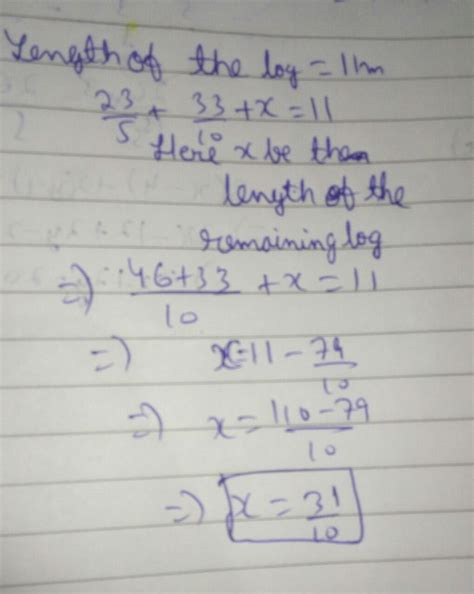 Length of the log = 11m
23/5 + 33/10 + x = 11
Here x be the
length of the
remaining log
=) 46+33/10 + x = 11
=) x=11 - 79/10
=) x = 110-79/10
=) x = 31/10